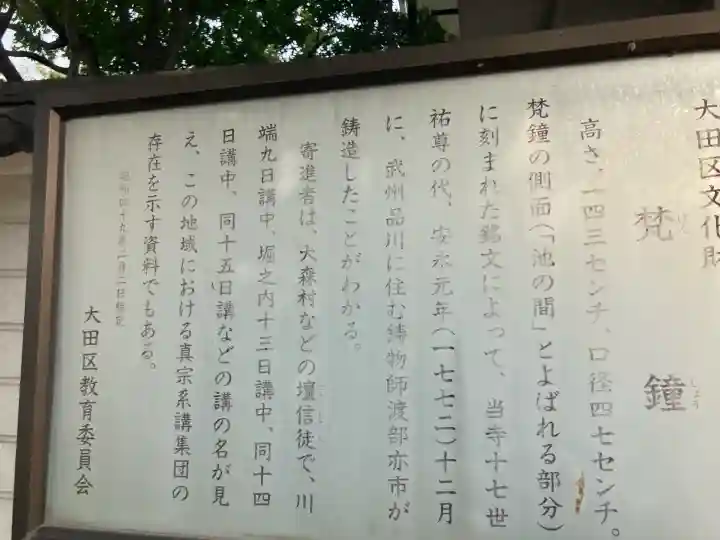 大田区文化財
梵鐘
高さ、一四三センチ、口径四七センチ。
梵鐘の側面(「池の間」とよばれる部分)
に刻まれた銘文によって、当寺十七世
祐尊の代、安永元年(一七七二)十二月
に、武州品川に住む鋳物師渡部亦市が
鋳造したことがわかる。
寄進者は、大森村などの壇信徒で、川
端九日講中、堀之内十三日講中、同十四
日講中、同十五日講などの講の名が見
え、この地域における真宗系講集団の
存在を示す資料でもある。
昭和四十九年二月二日指定
大田区教育委員会